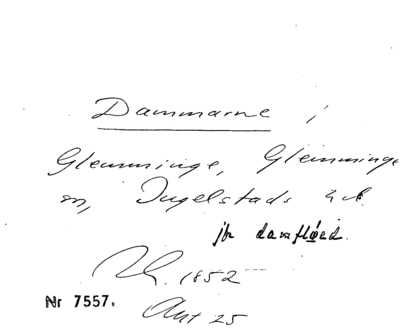 Dammarne i
Glemminge, Glemminge
sn, Ingelstads hd.
jfr damflöed.
1852
Nr 7557.
Avt 25